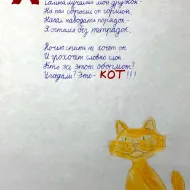 самый лучший мой дружок -
На пол сбросил он горшок.
Начал наводить порядок -
Я остался без тетрадок.
Ночью спать не хочет он
И грохочет словно слон
Кто же этот обормот?
Угадали? Это - КОТ!!!